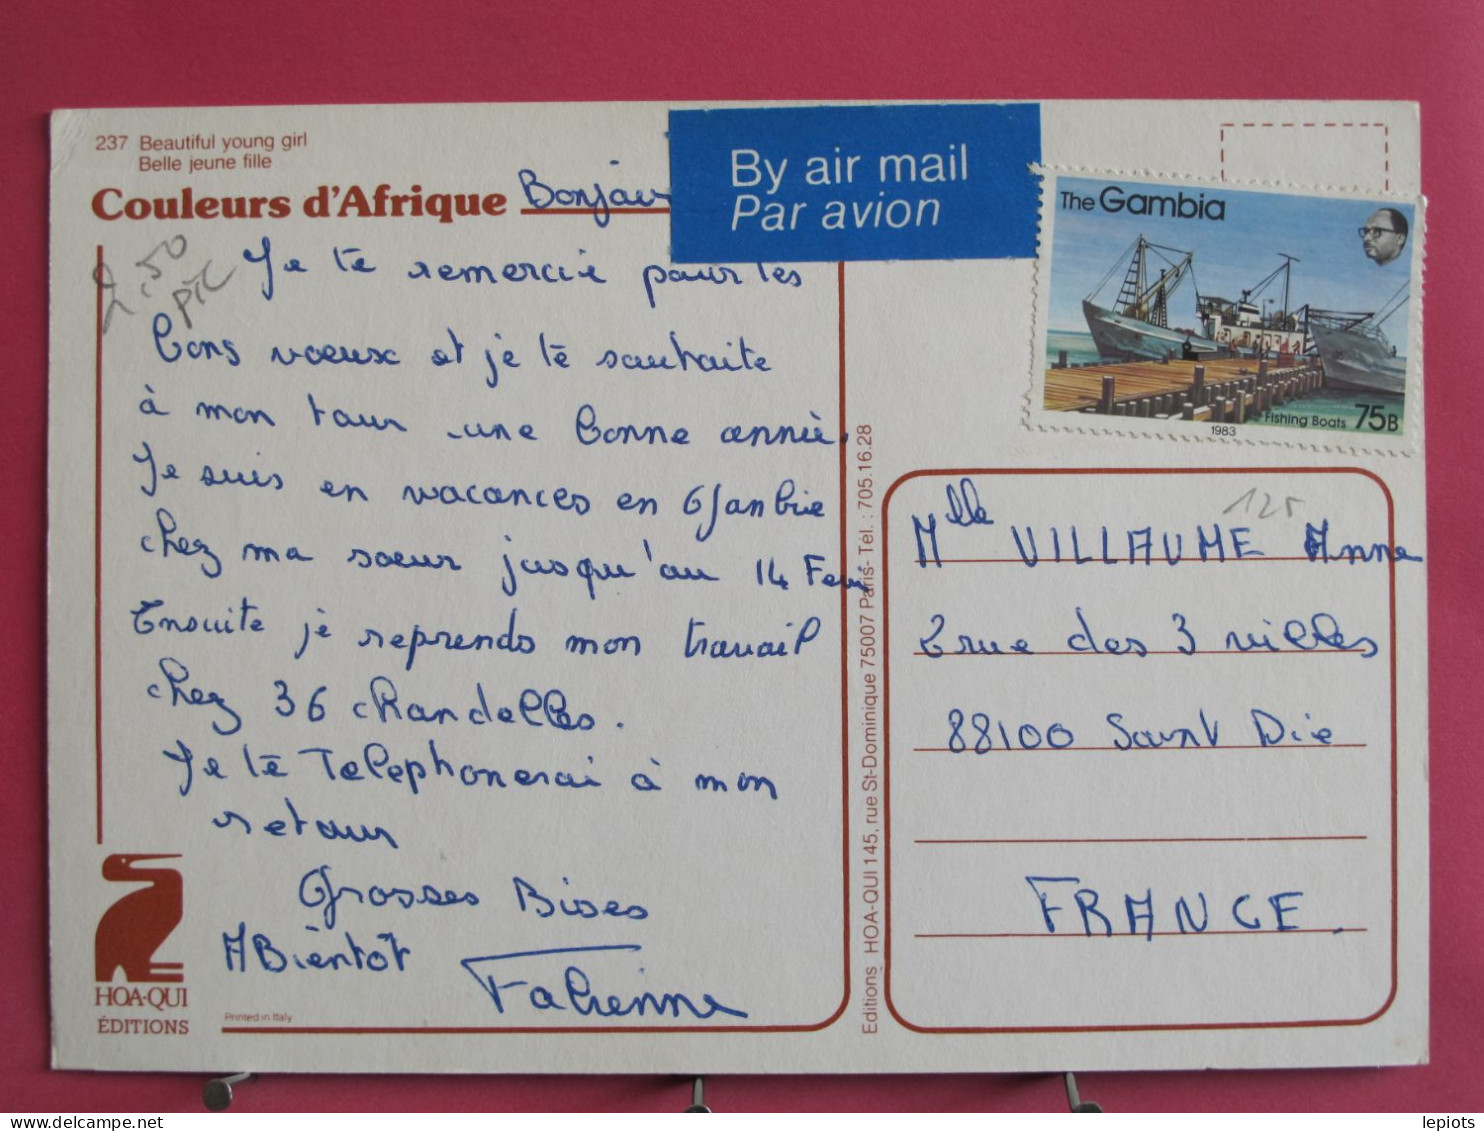 237 Beautiful young girl
Belle jeune fille
Couleurs d'Afrique
Bonjour
By air mail
Par avion
2.50
Je te remercie pour tes
bons voeux et je te souhaite
à mon tour une bonne année.
Je suis en vacances en Gambie
chez ma soeur jusqu'au 14 Fev
Ensuite je reprends mon travail
chez 36 chandelles.
Je te Telephonerai à mon
retour
Grosses Bises
A Bientôt
Fabienne
HOA-QUI
ÉDITIONS
Printed in Italy
Editions HOA-QUI 145, rue St-Dominique 75007 Paris - Tél. : 705.16.28
The Gambia
Fishing Boats 75B
1983
125
Mlle VILLAUME Anne
2 rue des 3 villes
88100 Saint Die
FRANCE.
lepiots